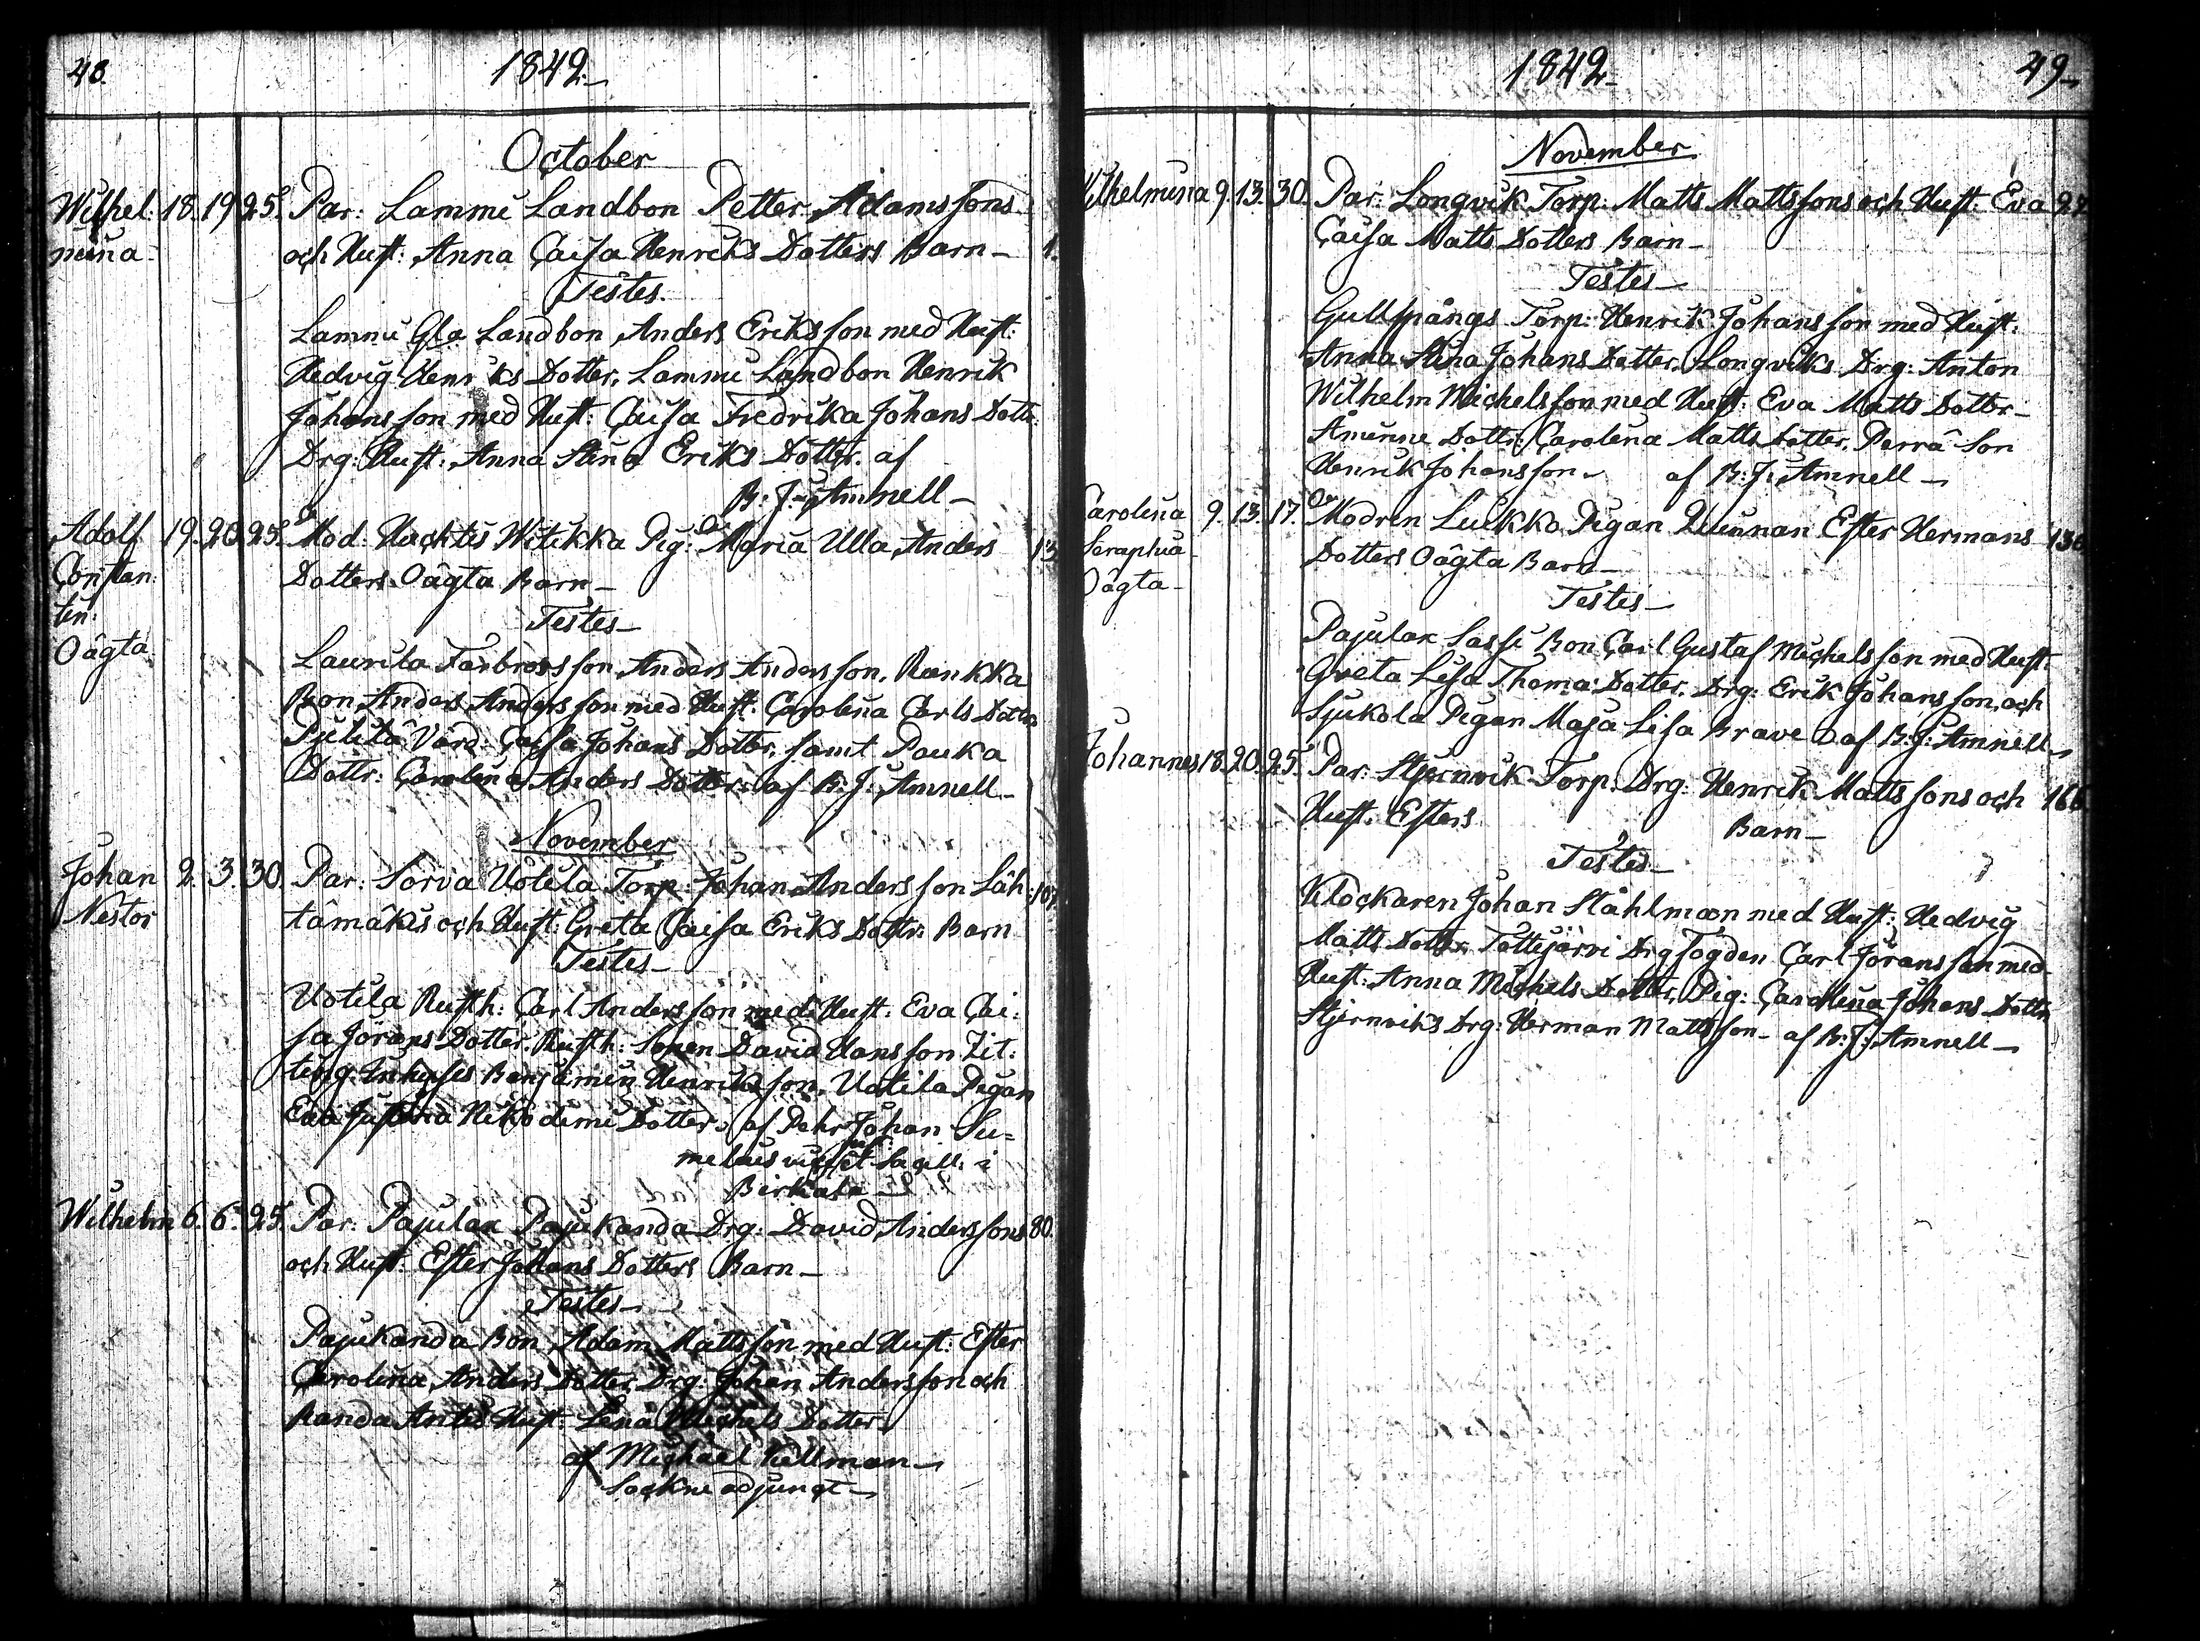 48. 1842.
October
Wilhel: 18. 19. 25. Par: Lammi Landbon Petter Adamssons
mina. och Hust: Anna Cajsa Henriks Dotters Barn 1.
Testes.
Lammi Landbon Anders Eriksson med Hust:
Hedvig Henriks Dotter, Lammi Landbon Henrik
Johansson med Hust: Cajsa Fredrika Johans Dottr:
Drg: Hust: Anna Stina Eriks Dotter. af
B: J: Amnell
Adolf 19. 20. 25. Mod: Hacktis Witikka Pig: Maria Ulla Anders
Constan: Dotters Oägta Barn
tin. Testes
Oägta.
Laurila Farbrorsson Anders Andersson, Rankka
Bon Anders Andersson med Hust: Carolina Carls Dotter
Cajsa Johans Dotter, samt Pauka
Dottr: Carolina Anders Dotter. af B: J: Amnell
November
Johan 2. 3. 30. Par: Sorva Uotila Torp: Johan Andersson Läh: 107.
Nestor tämäkis och Hust: Greta Cajsa Eriks Dottr: Barn
Testes
Uotila Rusth: Carl Andersson med Hust: Eva Cai:
sa Jörans Dotter. Rusth: Sonen David Hansson Tit:
Inhyses Benjamin Henriksson, Uotila Pigan
Eva Justina Nikodemi Dotter. af Pehr Johan Su=
melius Sacell: i
Birkala
Wilhelm 6. 6. 25. Par: Pajulax Pajukanda Drg: David Anderssons 80.
och Hust: Ester Johans Dotters Barn
Testes
Pajukanda Bon Adam Mattsson med Hust: Ester
Carolina Anders Dotter, Drg: Johan Andersson och
Randa Antis Hust: Lena Michels Dotter
af Michael Kellman
Sockne adjunct
1842 49
November
Wilhelmina 9. 13. 30. Par: Longvik Torp: Matts Mattssons och Hust: Eva
Cajsa Matts Dotters Barn
Testes
Gullspångs Torp: Henrik Johansson med Hust:
Anna Stina Johans Dotter. Longviks Drg: Anton
Wilhelm Michelsson med Hust: Eva Matts Dotter
Dottr: Carolina Matts Dotter, Perrä Son
Henrik Johansson af B: J: Amnell
Carolina 9. 13. 17. Modren Luikko Pigan Ester Hermans
Seraphia Dotters Oägta Barn
Oägta Testes
Pajulax Sassi Bon Carl Gustaf Michelsson med Hust:
Greta Lisa Thoma Dotter. Drg: Erik Johansson, och
Sjukola Pigan Maja Lisa Brave af B: J: Amnell
Johannes 18. 20. 25. Par: Stjernvik Torp. Drg: Henrik Mattssons och 166
Hust: Esters Barn
Testes
Klockaren Johan Ståhlman med Hust: Hedvig
Matts Dotter, Tottijärvi Drg Carl Jöransson med
Hust: Anna Michels Dotter, Pig: Carolina Johans Dottr
Stjernviks Drg: Herman Mattsson af B: J: Amnell